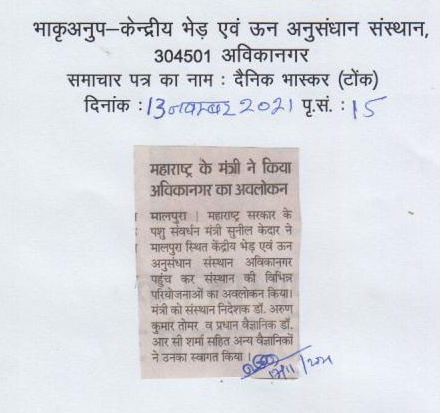 भाकृअनुप–केन्द्रीय भेड़ एवं ऊन अनुसंधान संस्थान,
304501 अविकानगर
समाचार पत्र का नाम : दैनिक भास्कर (टोंक)
दिनांक : 13 नवम्बर 2021 पृ.सं. : 15
महाराष्ट्र के मंत्री ने किया
अविकानगर का अवलोकन
मालपुरा | महाराष्ट्र सरकार के
पशु संवर्धन मंत्री सुनील केदार ने
मालपुरा स्थित केंद्रीय भेड़ एवं ऊन
अनुसंधान संस्थान अविकानगर
पहुंच कर संस्थान की विभिन्न
परियोजनाओं का अवलोकन किया।
मंत्री को संस्थान निदेशक डॉ. अरुण
कुमार तोमर व प्रधान वैज्ञानिक डॉ.
आर सी शर्मा सहित अन्य वैज्ञानिकों
ने उनका स्वागत किया।